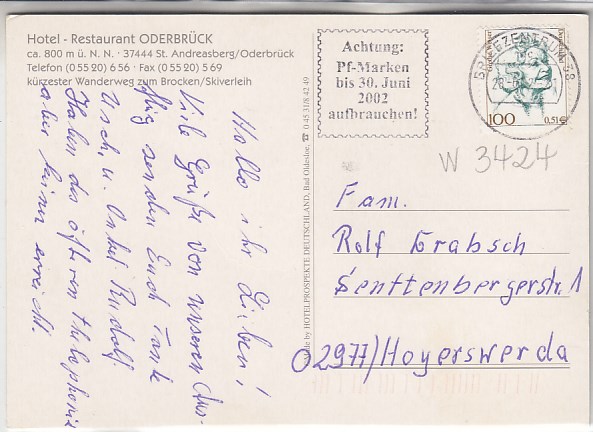 Hotel - Restaurant ODERBRÜCK
ca. 800 m ü. N. N. · 37444 St. Andreasberg/Oderbrück
Telefon (0 55 20) 6 56 · Fax (0 55 20) 5 69
kürzester Wanderweg zum Brocken/Skiverleih
Hallo ihr Lieben!
Viele Grüße von unseren Aus-
flug senden Euch Tante
Usch, u. Onkel Rudolf.
Haben des öftren thelephonie
aber keiner erreicht.
Made by HOTELPROSPEKTE DEUTSCHLAND, Bad Oldesloe, ☎ 0 45 31/8 42 49
Achtung:
Pf-Marken
bis 30. Juni
2002
aufbrauchen!
BRIEFZENTRUM 38
100 0,51€
W 3424
Fam.
Rolf Grabsch
Senttenbergerstr. 1
02977/Hoyerswerda